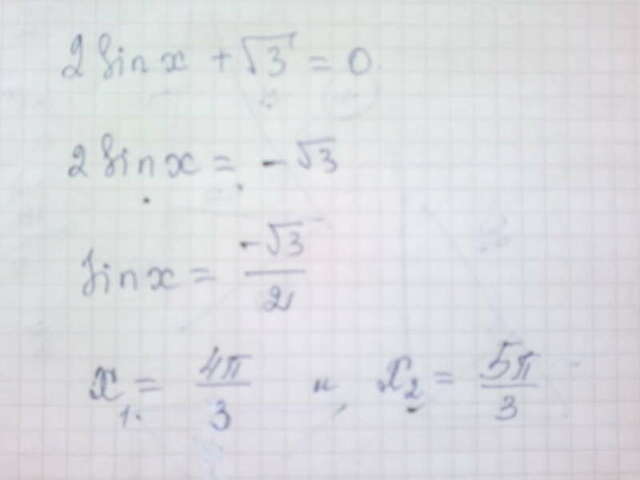 2 sin x + √3 = 0
2 sin x = -√3
sin x = -√3/2
x₁ = 4π/3 и x₂ = 5π/3